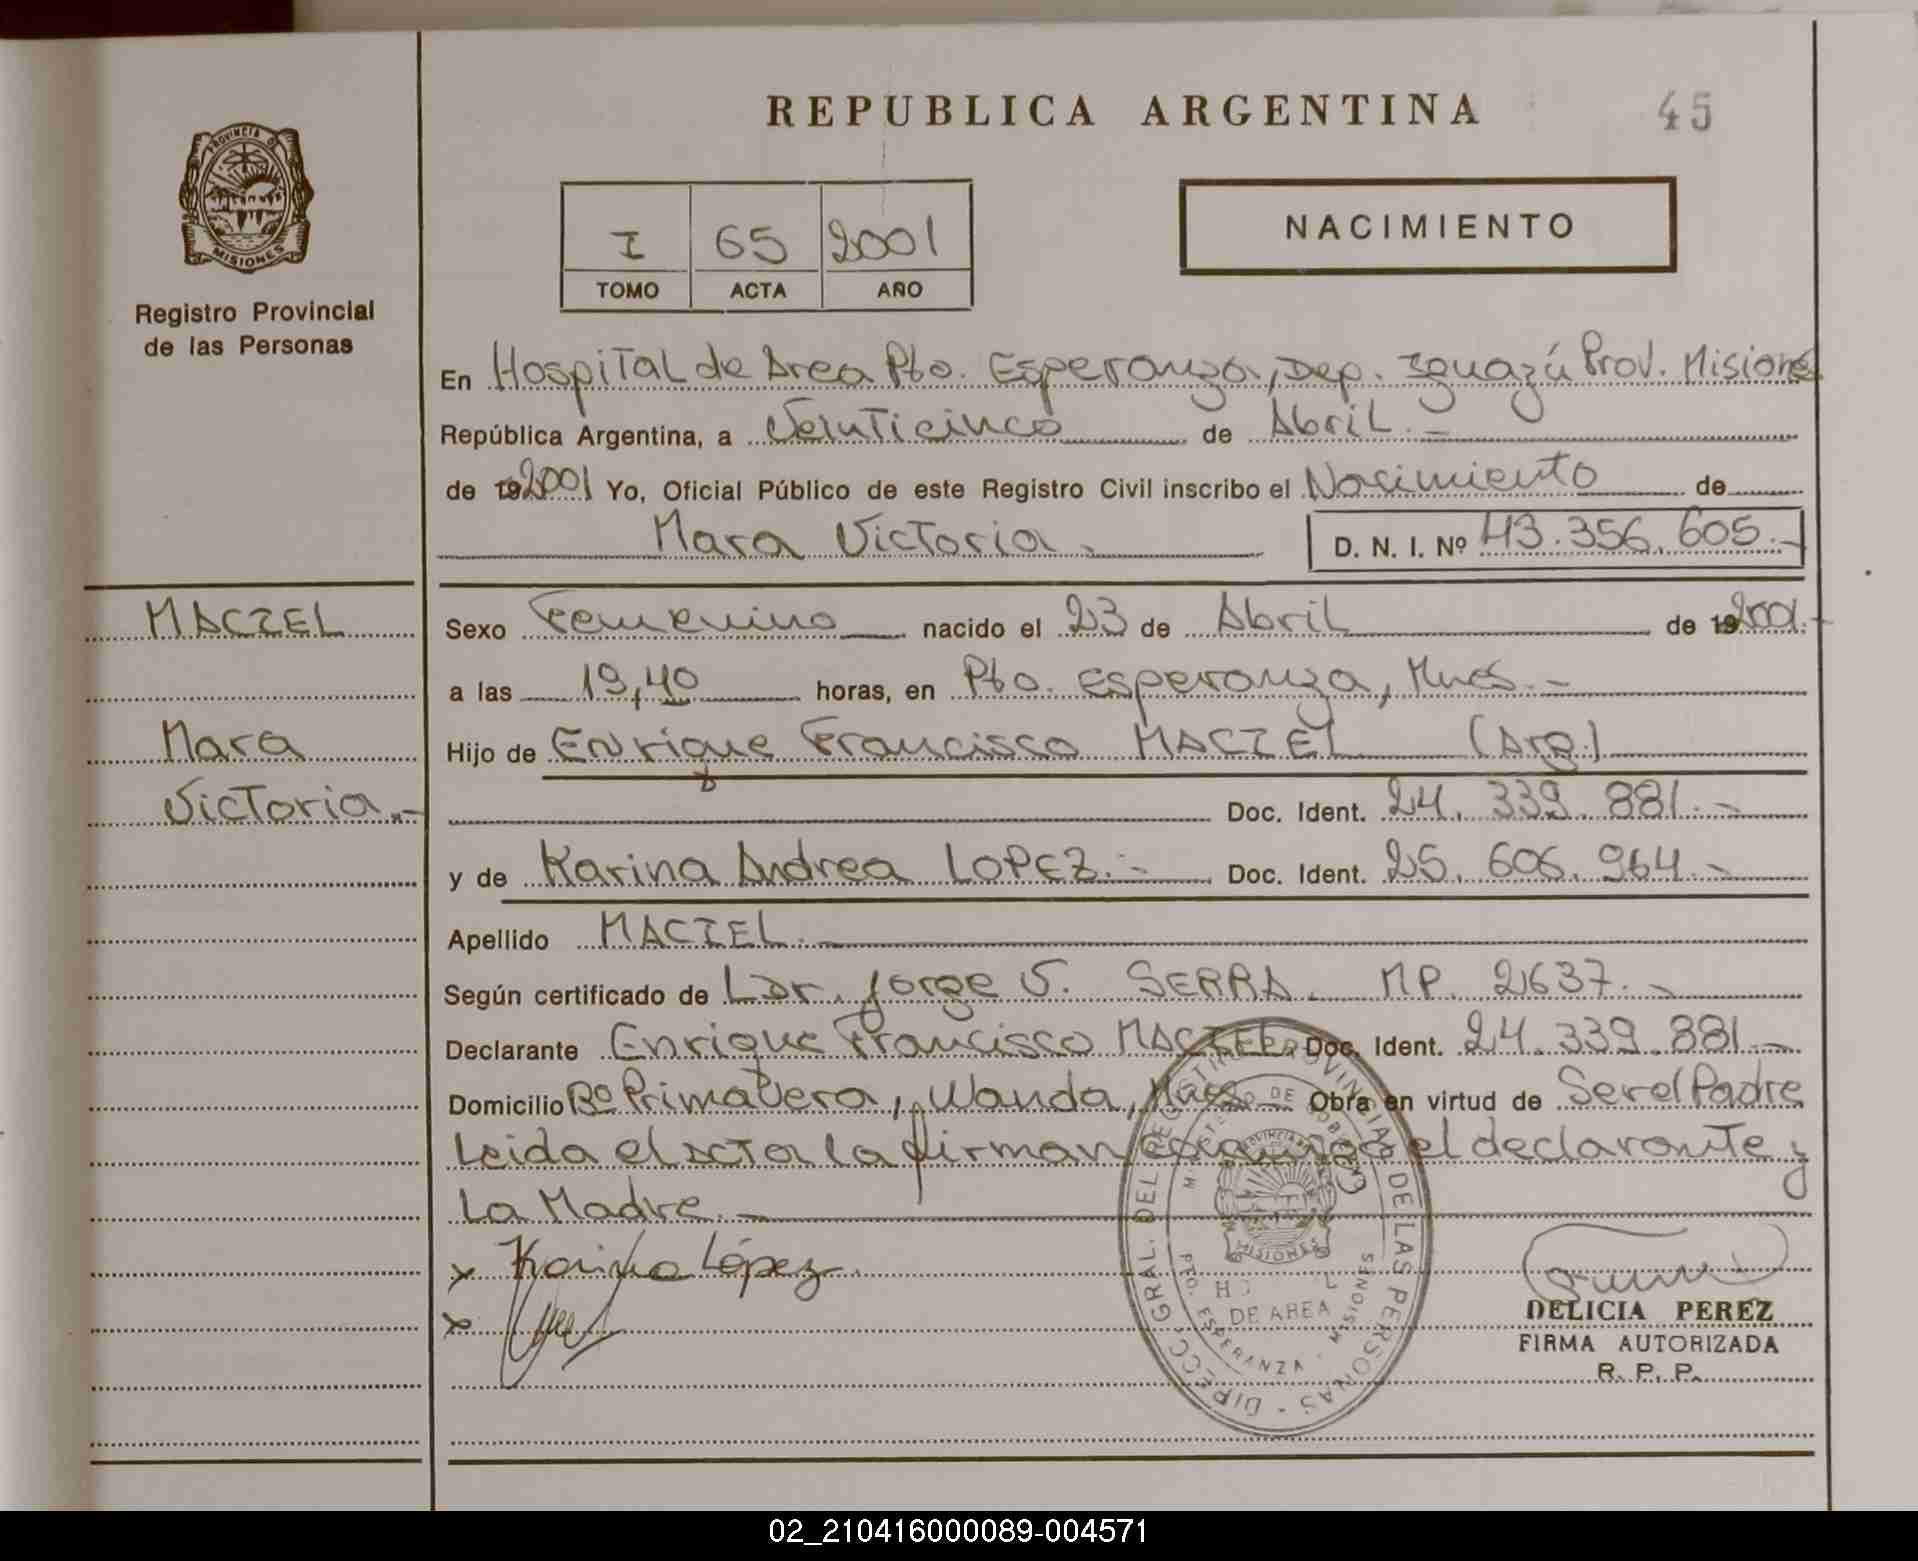 REPUBLICA ARGENTINA
45
PROVINCIA DE
MISIONES
Registro Provincial
de las Personas
I 65 2001
TOMO ACTA AÑO
NACIMIENTO
En Hospital de Area Pto. Esperanza, Dep. Iguazú Prov. Misiones
República Argentina, a Veinticinco de Abril.-
de 192001 Yo, Oficial Público de este Registro Civil inscribo el Nacimiento de
Mara Victoria. D. N. I. Nº 43.356.605.-
MACIEL
Mara
Victoria.-
Sexo Femenino nacido el 23 de Abril de 192001.-
a las 19,40 horas, en Pto. Esperanza, Mnes.-
Hijo de Enrique Francisco MACIEL (Arg.)
Doc. Ident. 24.339.881.-
y de Karina Andrea LOPEZ.- Doc. Ident. 25.606.964.-
Apellido MACIEL.-
Según certificado de Dr. Jorge V. SERRA. MP. 2637.-
Declarante Enrique Francisco MACIEL. Doc. Ident. 24.339.881.-
Domicilio Bº Primavera, Wanda, Mnes.- Obra en virtud de Ser el Padre
Leida el acta la firman conmigo el declarante y
La Madre.-
x Karina López.
x
DELICIA PEREZ
FIRMA AUTORIZADA
R. P. P.
DIRECC. GRAL. DEL REGISTRO PROVINCIAL DE LAS PERSONAS
MINISTERIO DE GOBIERNO
PROVINCIA DE
MISIONES
DE AREA
PTO. ESPERANZA - MISIONES
02_210416000089-004571